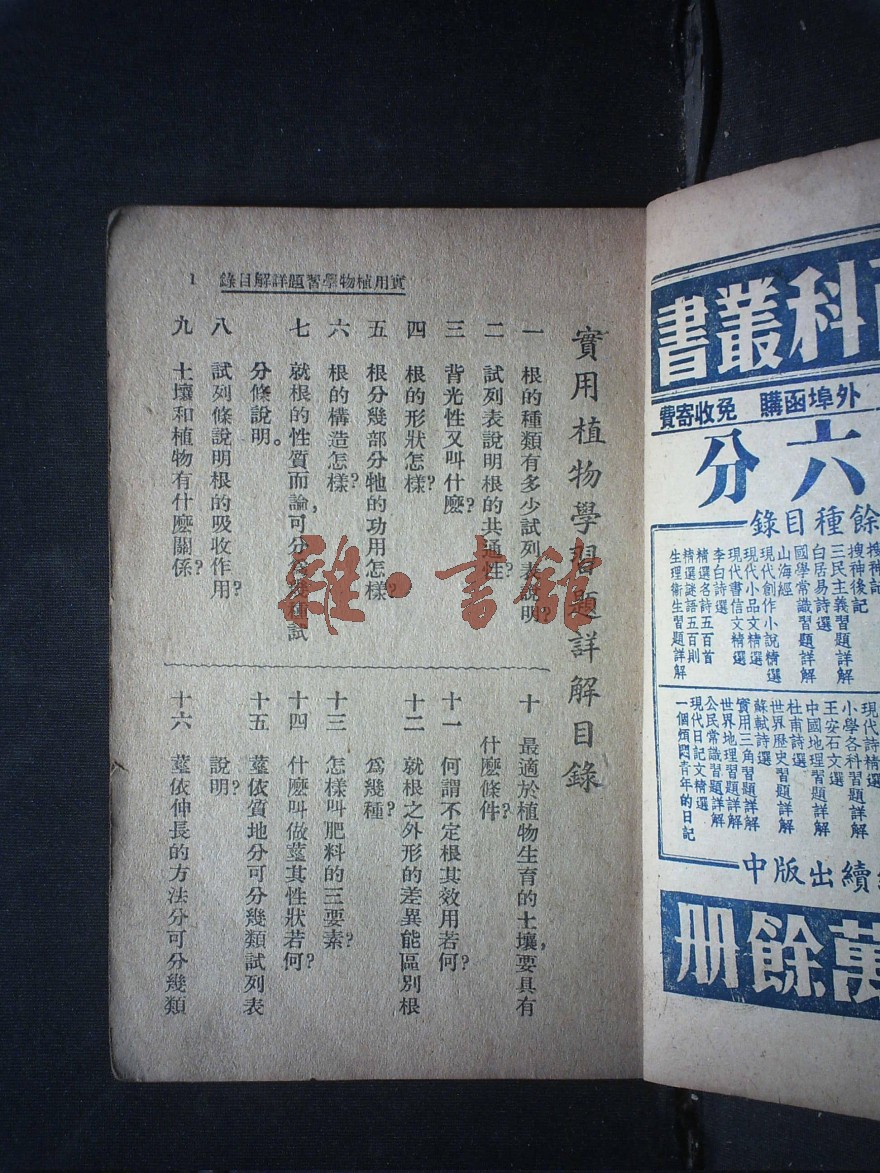 實用植物學習題詳解目錄 1
實用植物學習題詳解目錄
一 根的種類有多少試列表說明?
二 試列表說明根的共通性?
三 背光性又叫什麼?
四 根的形狀怎樣?
五 根分幾部分牠的功用怎樣?
六 根的構造怎樣?
七 就根的性質而論,可分爲幾種試
分條說明。
八 試列條說明根的吸收作用?
九 土壤和植物有什麼關係?
十 最適於植物生育的土壤,要具有
什麼條件?
十一 何謂不定根其效用若何?
十二 就根之外形的差異能區別根
爲幾種?
十三 怎樣叫肥料的三要素?
十四 什麼叫做莖其性狀若何?
十五 莖依質地分可分幾類試列表
說明?
十六 莖依伸長的方法分可分幾類
雜·書館
科叢書
外埠函購 免收寄費
六分
餘種目錄
搜神後記
三民主義習題詳解
白居易詩選
國學常識習題詳解
山海經
現代創作小說精選
現代小品文精選
現代書信文精選
李白詩選
精選名詩五百首
精選謎語五百則
生理衛生習題詳解
現代詩精選
小學各科習題詳解
王安石文選
中國地理習題詳解
杜甫詩選
世界歷史習題詳解
蘇軾詩選
實用三角習題詳解
世界地理習題詳解
公民常識習題詳解
現代日記文精選
一個煩悶青年的日記
續出版中
萬餘册